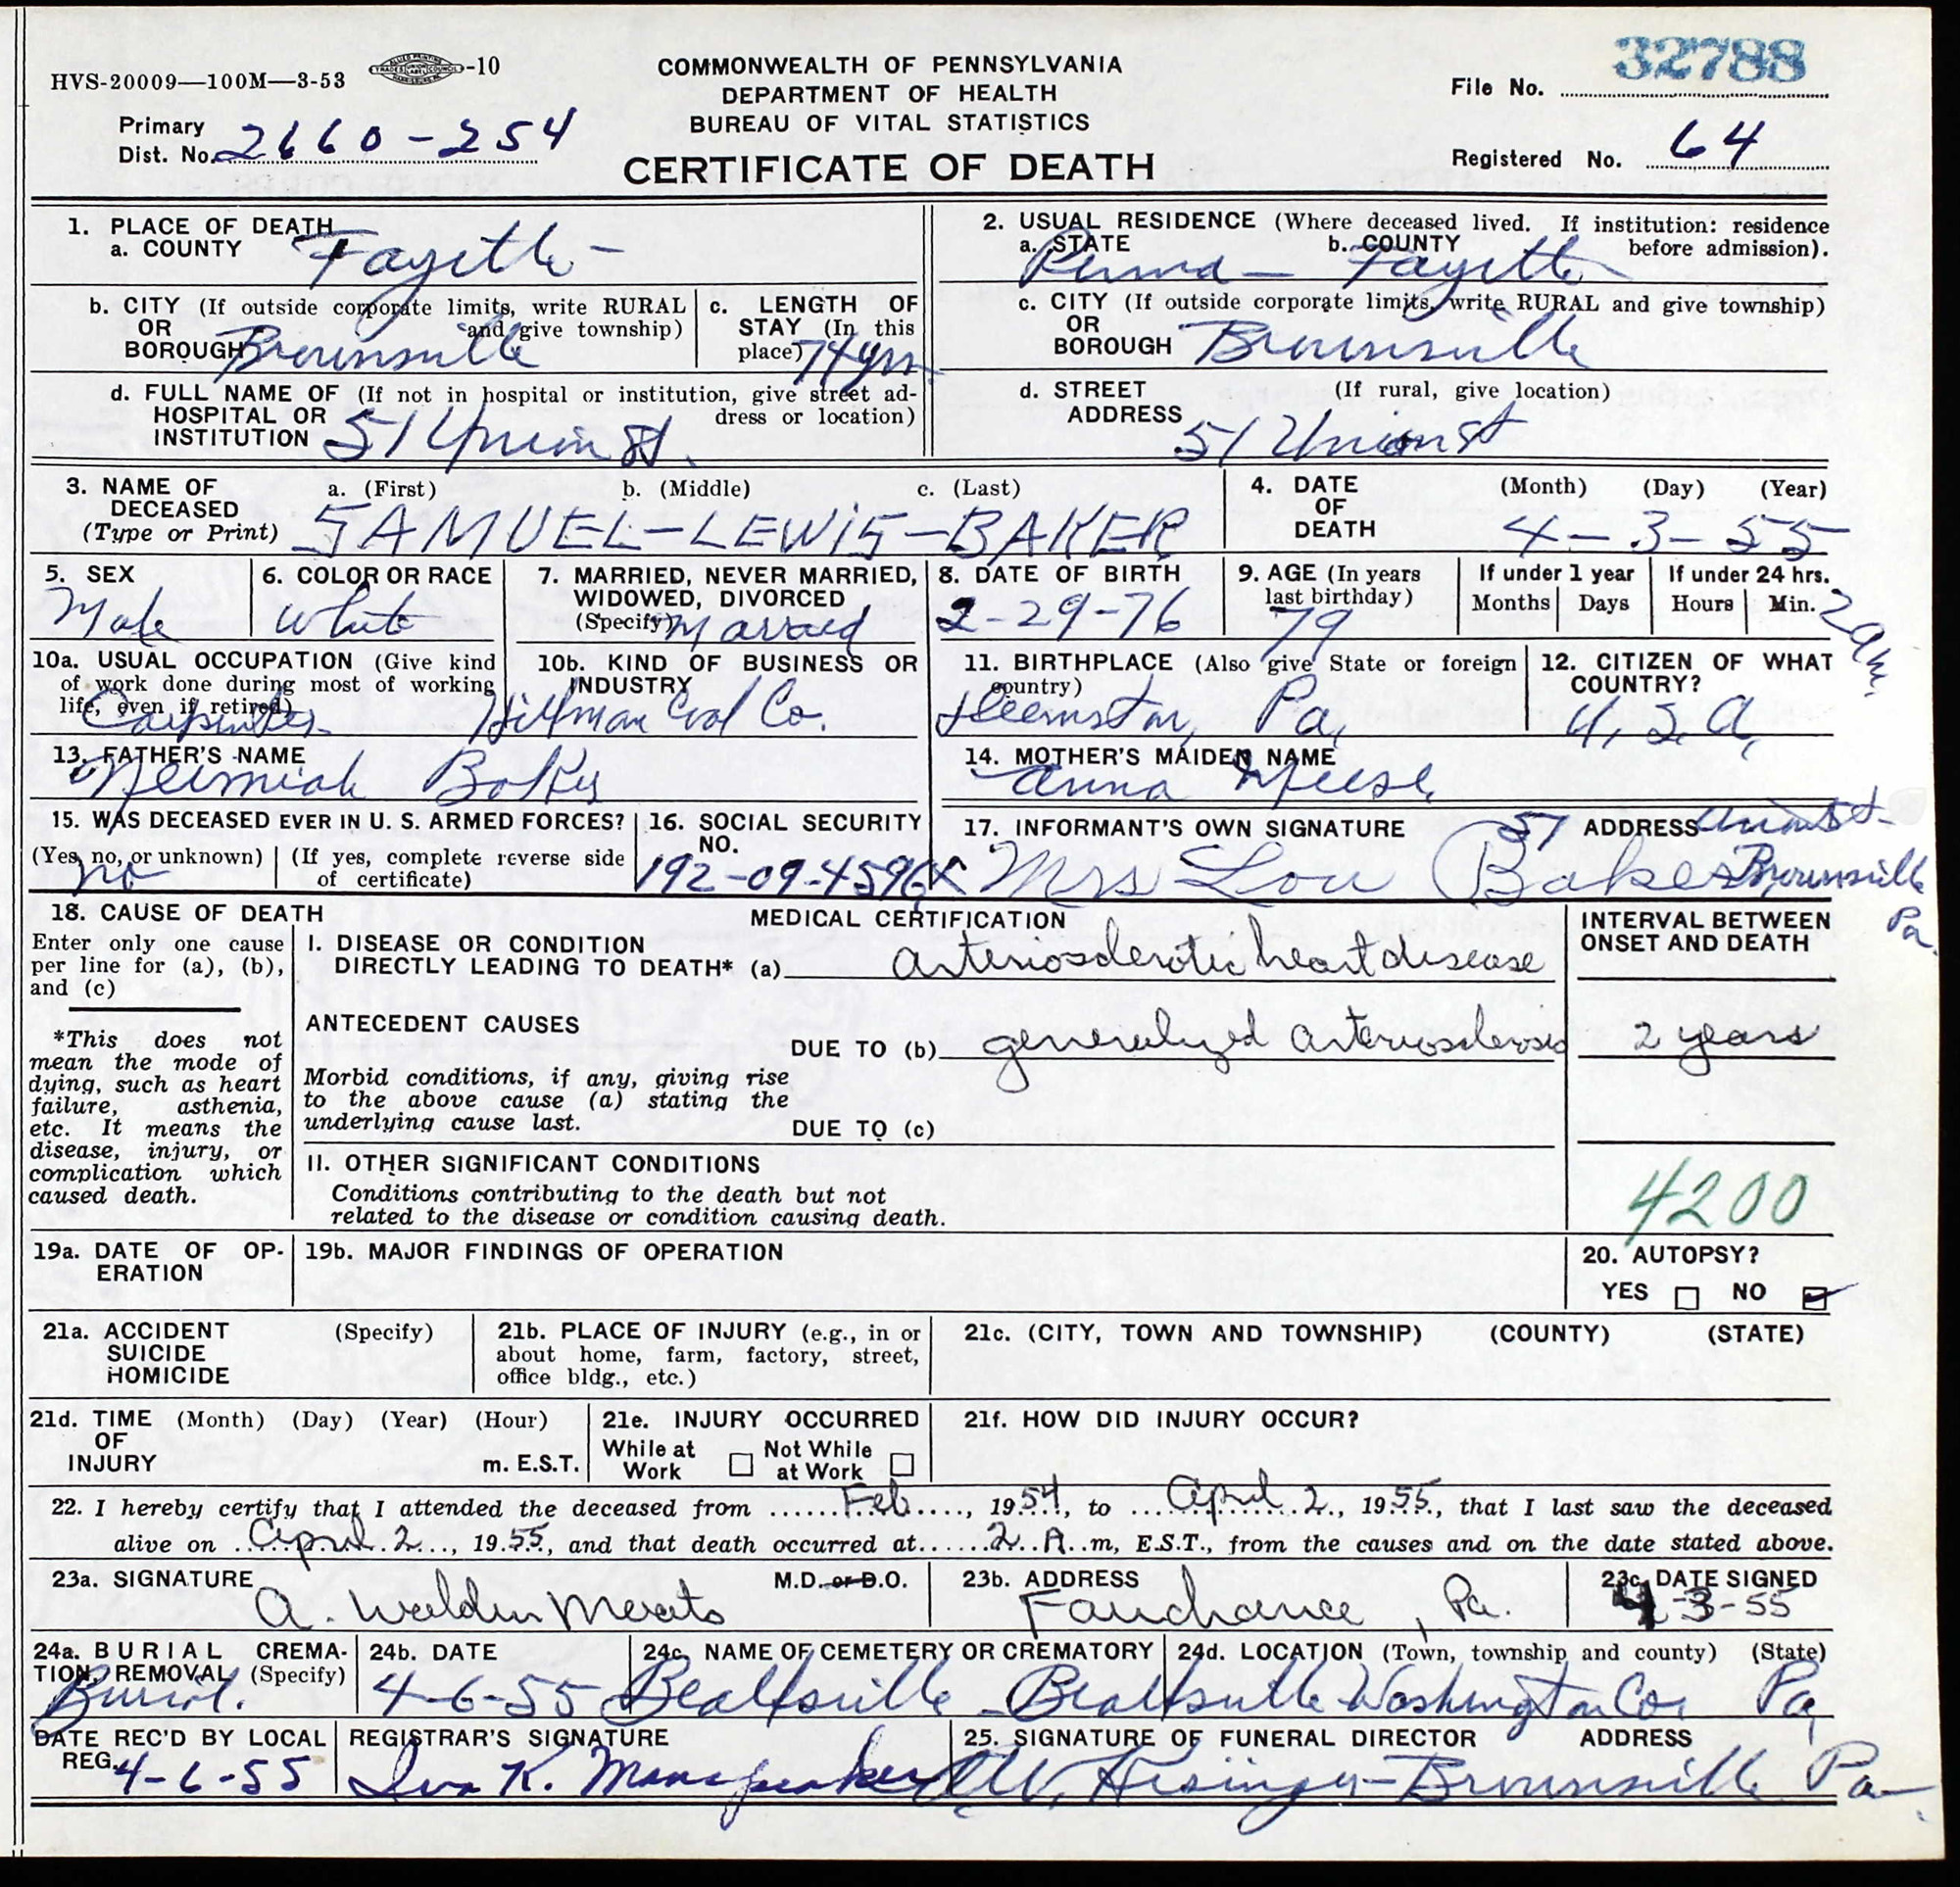 HVS-20009—100M—3-53 -10
COMMONWEALTH OF PENNSYLVANIA
DEPARTMENT OF HEALTH
BUREAU OF VITAL STATISTICS
CERTIFICATE OF DEATH
File No. 32788
Primary
Dist. No. 2660-254
Registered No. 64
1. PLACE OF DEATH
a. COUNTY Fayette -
2. USUAL RESIDENCE (Where deceased lived. If institution: residence
before admission).
a. STATE b. COUNTY
Penna - Fayette
b. CITY (If outside corporate limits, write RURAL
OR and give township)
BOROUGH Brownsville
c. LENGTH OF
STAY (In this
place) 74 yrs
c. CITY (If outside corporate limits, write RURAL and give township)
OR
BOROUGH Brownsville
d. FULL NAME OF (If not in hospital or institution, give street ad-
HOSPITAL OR dress or location)
INSTITUTION 51 Union St.
d. STREET (If rural, give location)
ADDRESS
51 Union St
3. NAME OF
DECEASED
(Type or Print)
a. (First) b. (Middle) c. (Last)
SAMUEL-LEWIS-BAKER
4. DATE
OF
DEATH
(Month) (Day) (Year)
4-3-55
5. SEX
Male
6. COLOR OR RACE
White
7. MARRIED, NEVER MARRIED,
WIDOWED, DIVORCED
(Specify) Married
8. DATE OF BIRTH
2-29-76
9. AGE (In years
last birthday)
79
If under 1 year
Months Days
If under 24 hrs.
Hours Min.
2 am.
10a. USUAL OCCUPATION (Give kind
of work done during most of working
life, even if retired)
Carpenter
10b. KIND OF BUSINESS OR
INDUSTRY
Hillman Coal Co.
11. BIRTHPLACE (Also give State or foreign
country)
Pa.
12. CITIZEN OF WHAT
COUNTRY?
U.S.A.
13. FATHER'S NAME
Neimiah Baker
14. MOTHER'S MAIDEN NAME
Anna
15. WAS DECEASED EVER IN U. S. ARMED FORCES?
(Yes, no, or unknown) (If yes, complete reverse side
of certificate)
no
16. SOCIAL SECURITY
NO.
192-09-4596
17. INFORMANT'S OWN SIGNATURE ADDRESS
51 Union St-
X Mrs Lou Baker Brownsville
Pa
18. CAUSE OF DEATH
Enter only one cause
per line for (a), (b),
and (c)
*This does not
mean the mode of
dying, such as heart
failure, asthenia,
etc. It means the
disease, injury, or
complication which
caused death.
MEDICAL CERTIFICATION
I. DISEASE OR CONDITION
DIRECTLY LEADING TO DEATH* (a) arteriosclerotic heart disease
ANTECEDENT CAUSES
DUE TO (b) generalized arteriosclerosis
Morbid conditions, if any, giving rise
to the above cause (a) stating the
underlying cause last.
DUE TO (c)
II. OTHER SIGNIFICANT CONDITIONS
Conditions contributing to the death but not
related to the disease or condition causing death.
INTERVAL BETWEEN
ONSET AND DEATH
2 years
4200
19a. DATE OF OP-
ERATION
19b. MAJOR FINDINGS OF OPERATION
20. AUTOPSY?
YES NO
21a. ACCIDENT (Specify)
SUICIDE
HOMICIDE
21b. PLACE OF INJURY (e.g., in or
about home, farm, factory, street,
office bldg., etc.)
21c. (CITY, TOWN AND TOWNSHIP) (COUNTY) (STATE)
21d. TIME (Month) (Day) (Year) (Hour)
OF
INJURY m. E.S.T.
21e. INJURY OCCURRED
While at Not While
Work at Work
21f. HOW DID INJURY OCCUR?
22. I hereby certify that I attended the deceased from Feb, 1954, to April 2, 1955, that I last saw the deceased
alive on April 2, 1955, and that death occurred at 2 A m, E.S.T., from the causes and on the date stated above.
23a. SIGNATURE M.D. or D.O.
A. Walden
23b. ADDRESS
Fairchance, Pa.
23c. DATE SIGNED
4-3-55
24a. BURIAL CREMA-
TION, REMOVAL (Specify)
Burial.
24b. DATE
4-6-55
24c. NAME OF CEMETERY OR CREMATORY
Beallsville
24d. LOCATION (Town, township and county) (State)
Beallsville Washington Co. Pa.
DATE REC'D BY LOCAL
REG. 4-6-55
REGISTRAR'S SIGNATURE
K.
25. SIGNATURE OF FUNERAL DIRECTOR ADDRESS
Brownsville Pa-